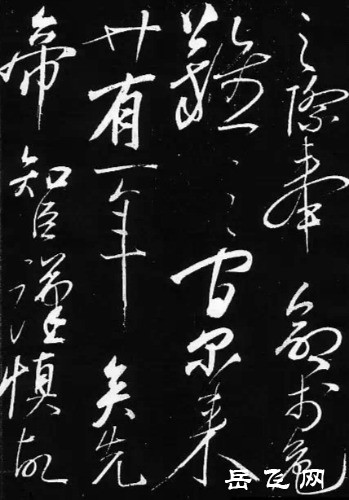 之際奉命於危
難之間尔来
廿有一年矣先
帝知臣謹慎故
岳飞网